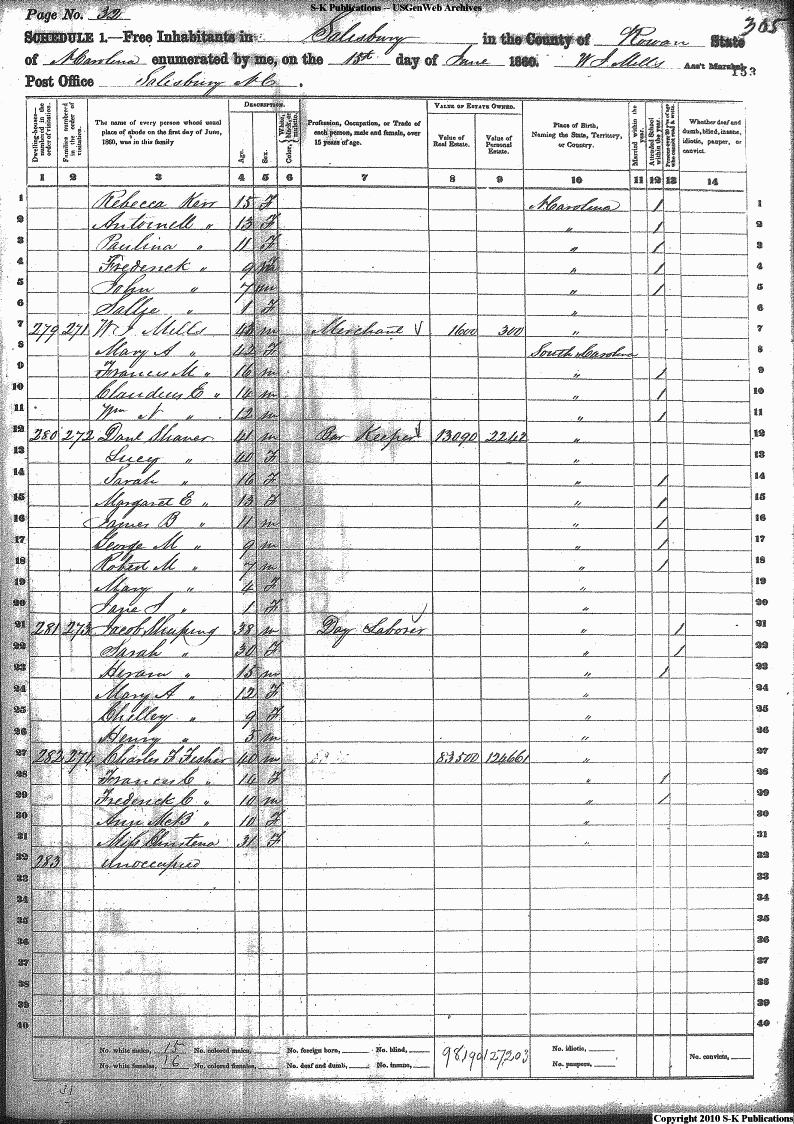 S-K Publications -- USGenWeb Archives
Page No. 32
305
SCHEDULE 1.—Free Inhabitants in Salisbury in the County of Rowan State
of N Carolina enumerated by me, on the 15th day of June 1860. W J Mills Ass't Marshal.
153
Post Office Salisbury N C.
Dwelling-house—numbered in the order of visitation.
Families numbered in the order of visitation.
The name of every person whose usual place of abode on the first day of June, 1860, was in this family
DESCRIPTION.
Age.
Sex.
Color, White, black, or mulatto.
Profession, Occupation, or Trade of each person, male and female, over 15 years of age.
VALUE OF ESTATE OWNED.
Value of Real Estate.
Value of Personal Estate.
Place of Birth, Naming the State, Territory, or Country.
Married within the year.
Attended School within the year.
Persons over 20 y'rs of age who cannot read & write.
Whether deaf and dumb, blind, insane, idiotic, pauper, or convict.
1 2 3 4 5 6 7 8 9 10 11 12 13 14
1 Rebecca Kerr 15 F N Carolina / 1
2 Antoinell " 13 F " / 2
3 Paulina " 11 F " / 3
4 Frederick " 9 m " / 4
5 John " 7 m " / 5
6 Sallie " 1 F " 6
7 279 271 W J Mills 43 m Merchant 1600 300 " 7
8 Mary A " 42 F South Carolina 8
9 Francis M " 16 m " / 9
10 Claudius E " 14 m " / 10
11 Wm N " 12 m " / 11
12 280 272 Danl Shaver 41 m Bar Keeper 13090 2242 " 12
13 Lucy " 40 F " 13
14 Sarah " 16 F " / 14
15 Margaret E " 13 F " / 15
16 James B " 11 m " / 16
17 George M " 9 m " / 17
18 Robert M " 7 m " / 18
19 Mary " 4 F " 19
20 Jane S " 1 F " 20
21 281 273 Jacob Shuping 38 m Day Laborer " / 21
22 Sarah " 30 F " / 22
23 Heram " 15 m " / 23
24 Mary A " 12 F " 24
25 Chelley " 9 F " 25
26 Henry " 5 m " 26
27 282 274 Charles F Fisher 40 m 83500 124661 " 27
28 Frances C " 14 F " / 28
29 Frederick C " 10 m " / 29
30 Ann McB " 10 F " 30
31 Miss Christena 31 F " 31
32 283 Unoccupied 32
33 33
34 34
35 35
36 36
37 37
38 38
39 39
40 40
No. white males, 15 No. colored males, No. foreign born, No. blind, 98190 127203 No. idiotic,
No. white females, 16 No. colored females, No. deaf and dumb, No. insane, No. paupers, No. convicts,
31
Copyright 2010 S-K Publications